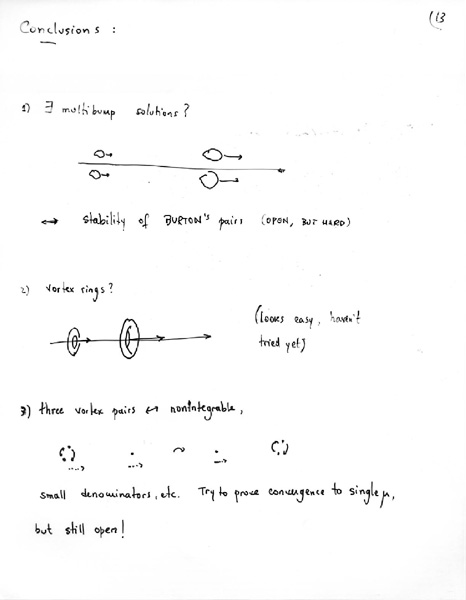 (13
Conclusions :
1) ∃ multibump solutions?
↔ stability of BURTON's pairs (OPEN, BUT HARD)
2) vortex rings?
(looks easy, haven't
tried yet)
3) three vortex pairs ↔ nonintegrable,
~
small denominators, etc. Try to prove convergence to single μ,
but still open!